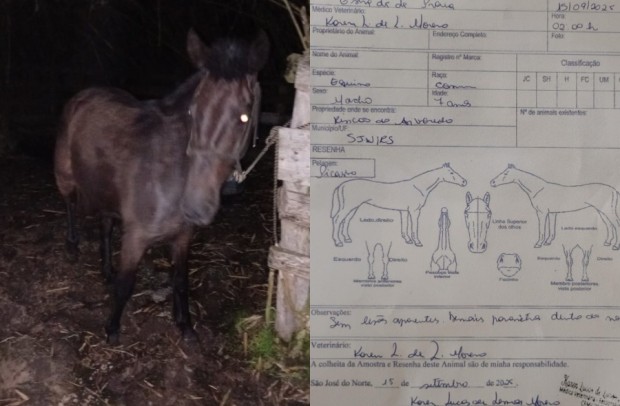 15/09/2025
Médico Veterinário:
Hora
Karen L. de L. Moreno
02:00 h
Proprietário do Animal:
Endereço Completo
Fone
Nome do Animal:
Registro nº Marca:
Classificação
Espécie:
Raça
JC SH H FC UM
Equino
Comum
Sexo:
Idade:
Macho
7 anos
Propriedade onde se encontra:
Nº de animais existentes:
Rincão do
Município/UF:
SJN/RS
RESENHA
Pelagem:
Picasso
Lado direito
Linha Superior dos olhos
Lado esquerdo
Esquerdo Direito
Esquerdo Direito
Pescoço Vista inferior
Focinho
Membros anteriores vista posterior
Membros posteriores vista posterior
Observações:
Sem lesões aparentes. Demais
Veterinário:
Karen L. de L. Moreno
A colheita da Amostra e Resenha deste Animal são de minha responsabilidade.
São José do Norte, 15 de setembro de 2025.
Karen Lucas de Lemos Moreno